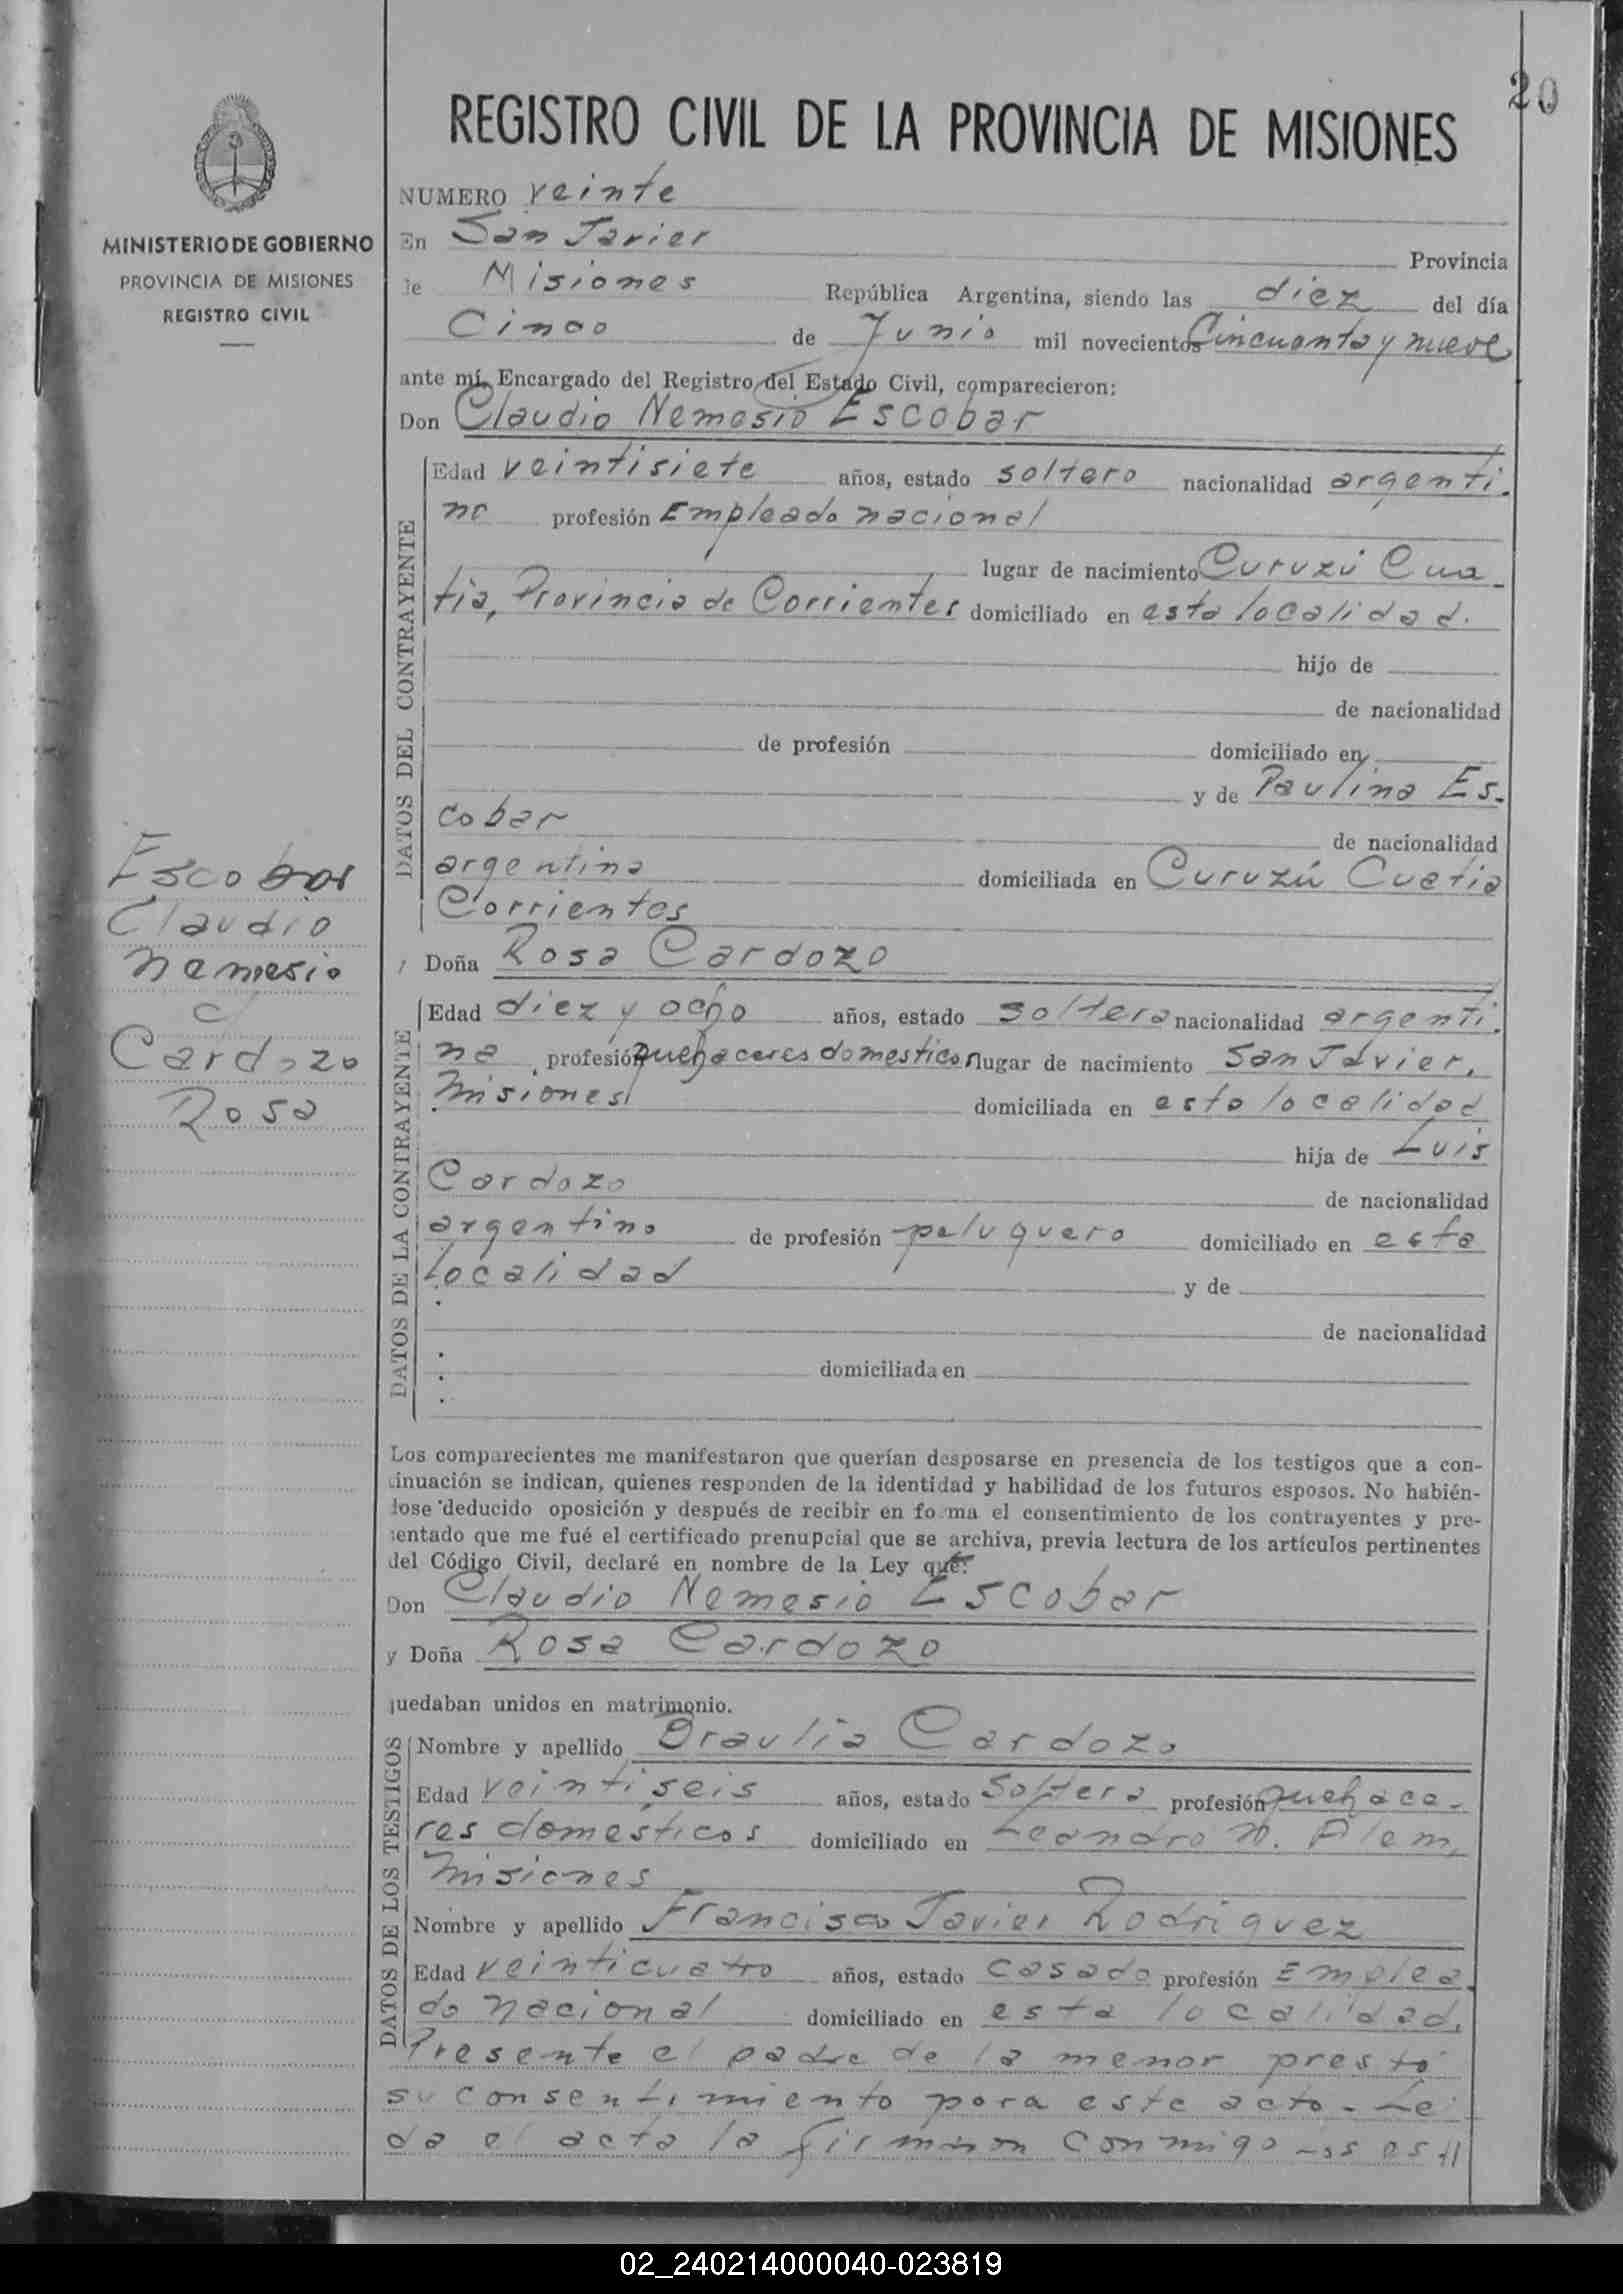 20
REGISTRO CIVIL DE LA PROVINCIA DE MISIONES
MINISTERIO DE GOBIERNO
PROVINCIA DE MISIONES
REGISTRO CIVIL
Escobar
Claudio
Nemesio
y
Cardozo
Rosa
NUMERO veinte
En San Javier Provincia
de Misiones República Argentina, siendo las diez del día
Cinco de Junio mil novecientos Cincuenta y nueve
ante mí, Encargado del Registro del Estado Civil, comparecieron:
Don Claudio Nemesio Escobar
DATOS DEL CONTRAYENTE
Edad veintisiete años, estado soltero nacionalidad argenti-
no profesión Empleado nacional
lugar de nacimiento Curuzú Cua-
tia, Provincia de Corrientes domiciliado en esta localidad.
hijo de
de nacionalidad
de profesión domiciliado en
y de Paulina Es-
cobar de nacionalidad
argentina domiciliada en Curuzú Cuatia
Corrientes
y Doña Rosa Cardozo
DATOS DE LA CONTRAYENTE
Edad diez y ocho años, estado soltera nacionalidad argenti-
na profesión quehaceres domesticos lugar de nacimiento San Javier,
Misiones domiciliada en esta localidad
hija de Luis
Cardozo de nacionalidad
argentino de profesión peluquero domiciliado en esta
Localidad y de
de nacionalidad
domiciliada en
Los comparecientes me manifestaron que querían desposarse en presencia de los testigos que a con-
tinuación se indican, quienes responden de la identidad y habilidad de los futuros esposos. No habién-
dose deducido oposición y después de recibir en forma el consentimiento de los contrayentes y pre-
sentado que me fué el certificado prenupcial que se archiva, previa lectura de los artículos pertinentes
del Código Civil, declaré en nombre de la Ley que:
Don Claudio Nemesio Escobar
y Doña Rosa Cardozo
quedaban unidos en matrimonio.
DATOS DE LOS TESTIGOS
Nombre y apellido Braulia Cardozo
Edad veintiseis años, estado Soltera profesión quehace-
res domesticos domiciliado en Leandro N. Alem,
Misiones
Nombre y apellido Francisco Javier Rodriguez
Edad veinticuatro años, estado Casado profesión Emplea-
do nacional domiciliado en esta localidad.
Presente el padre de la menor prestó
su consentimiento para este acto. Lei-
da el acta la firmaron conmigo los es//
02_240214000040-023819